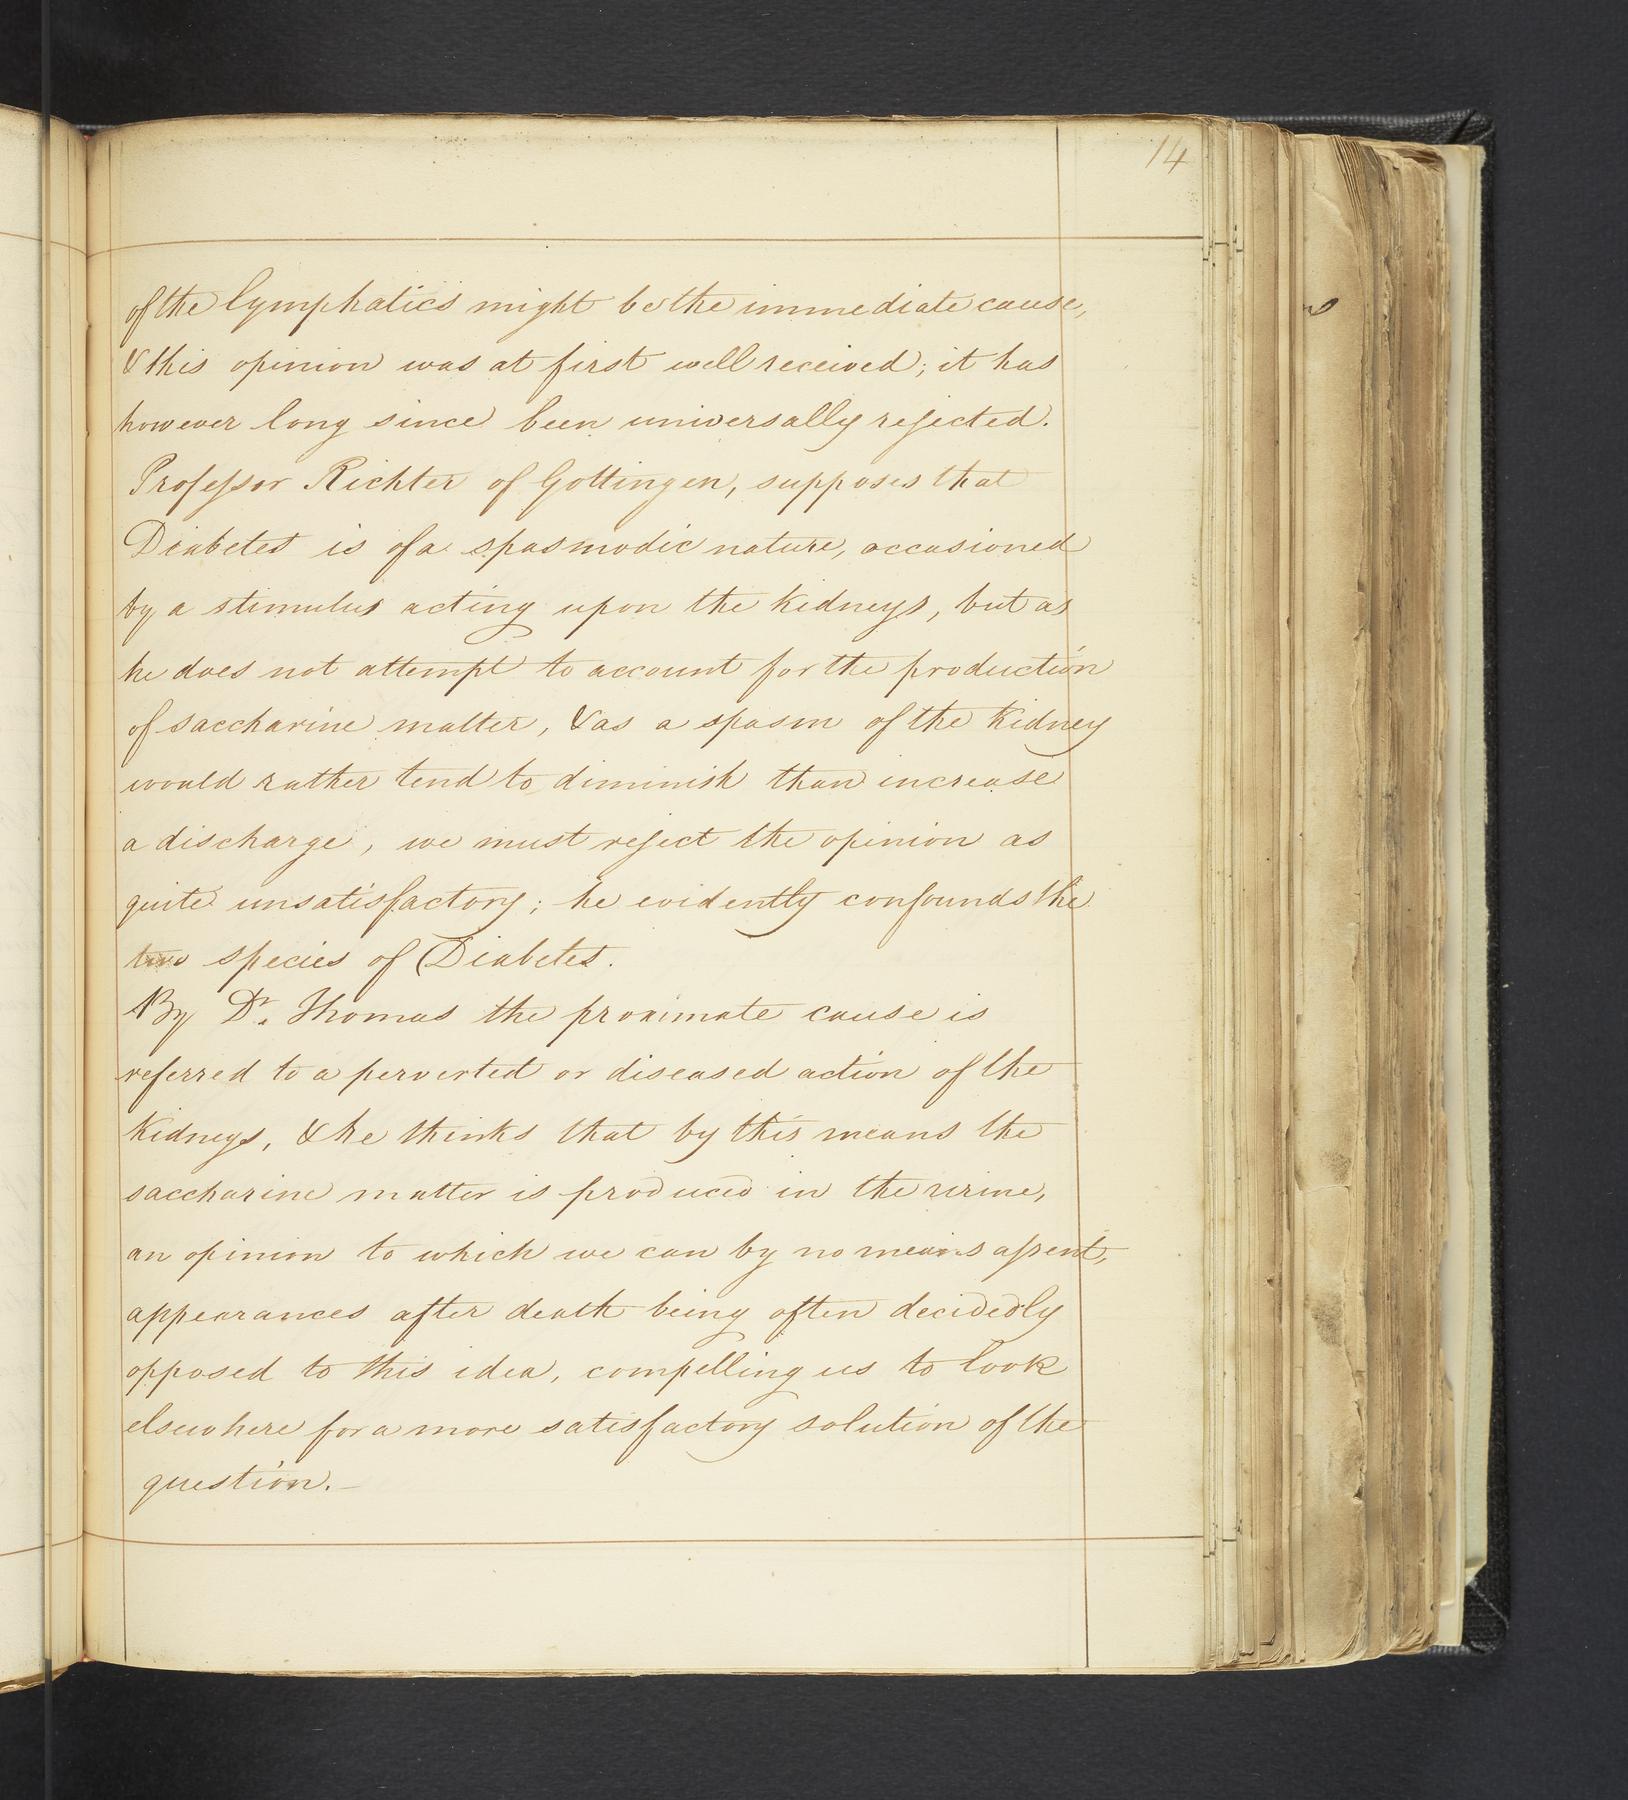 14
of the lymphatics might be the immediate cause,
& this opinion was at first well received; it has
however long since been universally rejected.
Professor Richter of Gottingen, supposes that
Diabetes is of a spasmodic nature, occasioned
by a stimulus acting upon the kidneys, but as
he does not attempt to account for the production
of saccharine matter, & as a spasm of the kidney
would rather tend to diminish than increase
a discharge, we must reject the opinion as
quite unsatisfactory; he evidently confounds the
two species of Diabetes.
By Dr. Thomas the proximate cause is
referred to a perverted or diseased action of the
kidneys, & he thinks that by this means the
saccharine matter is produced in the urine,
an opinion to which we can by no means assent,
appearances after death being often decidedly
opposed to this idea, compelling us to look
elsewhere for a more satisfactory solution of the
question.—